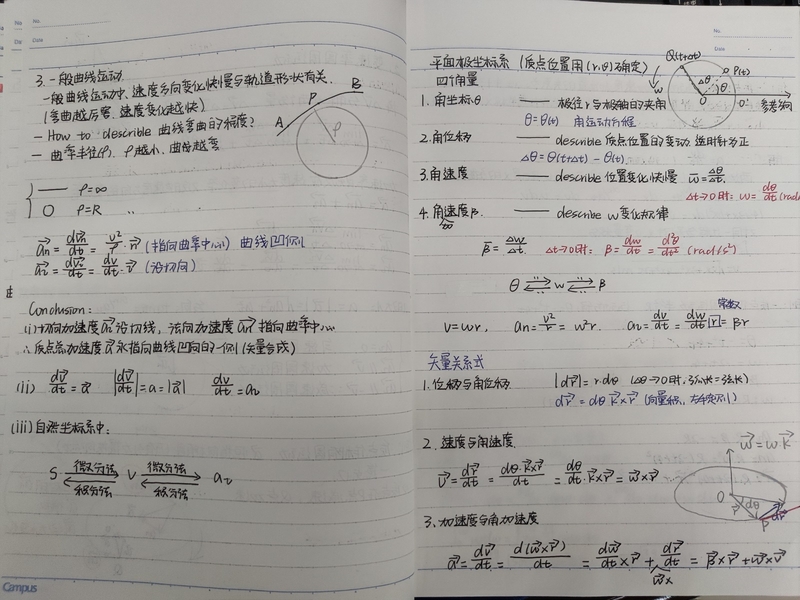 3. 一般曲线运动.
一般曲线运动中, 速度方向变化快慢与轨道形状有关.
(弯曲越厉害, 速度变化越快)
— How to describle 曲线弯曲的程度?
— 曲率半径(ρ). ρ越小, 曲的越弯
A P B ρ
— ρ=∞
O ρ=R 〃
an = dvn/dt = v²/ρ · n (指向曲率中心) 曲线凹侧
aτ = dvτ/dt = dv/dt · τ (沿切向)
Conclusion:
(i) 切向加速度 aτ 沿切线, 法向加速度 an 指向曲率中心
∴ 质点总加速度 a 永指向曲线凹向的一侧 (矢量合成)
(ii) dv/dt = a |dv/dt| = a = |a| dv/dt = aτ
(iii) 自然坐标系中:
S 微分法 积分法 V 微分法 积分法 aτ
Campus
平面极坐标系 (质点位置用(r,θ)确定)
四个角量
Q(t+Δt) P(t) Δθ θ w O 参考向
1. 角坐标θ —— 极径r与极轴的夹角
θ=θ(t) 角运动方程
2. 角位移 —— describe 质点位置的变动. 逆时针为正
Δθ = θ(t+Δt) - θ(t)
3. 角速度 —— describe 位置变化快慢 w = Δθ/Δt
Δt→0时: w = dθ/dt (rad
4. 角速度β. —— describe w变化规律
加
β = Δw/Δt Δt→0时: β = dw/dt = d²θ/dt² (rad/s²)
θ ⇌ w ⇌ β
v=wr, an = v²/r = w²r. aτ = dv/dt = dw/dt |r| = βr
常数
矢量关系式
1. 位移与角位移 |dr| = r·dθ (Δθ→0时, 弧长=弦长)
dr = dθ k×r (向量积, 右手定则)
2. 速度与角速度.
w = wk
v = dr/dt = dθ·k×r/dt = dθ/dt · k×r = w×r
O dθ r dr P
3. 加速度与角加速度
a = dv/dt = d(w×r)/dt = dw/dt × r + dr/dt = β×r + w×v
w×